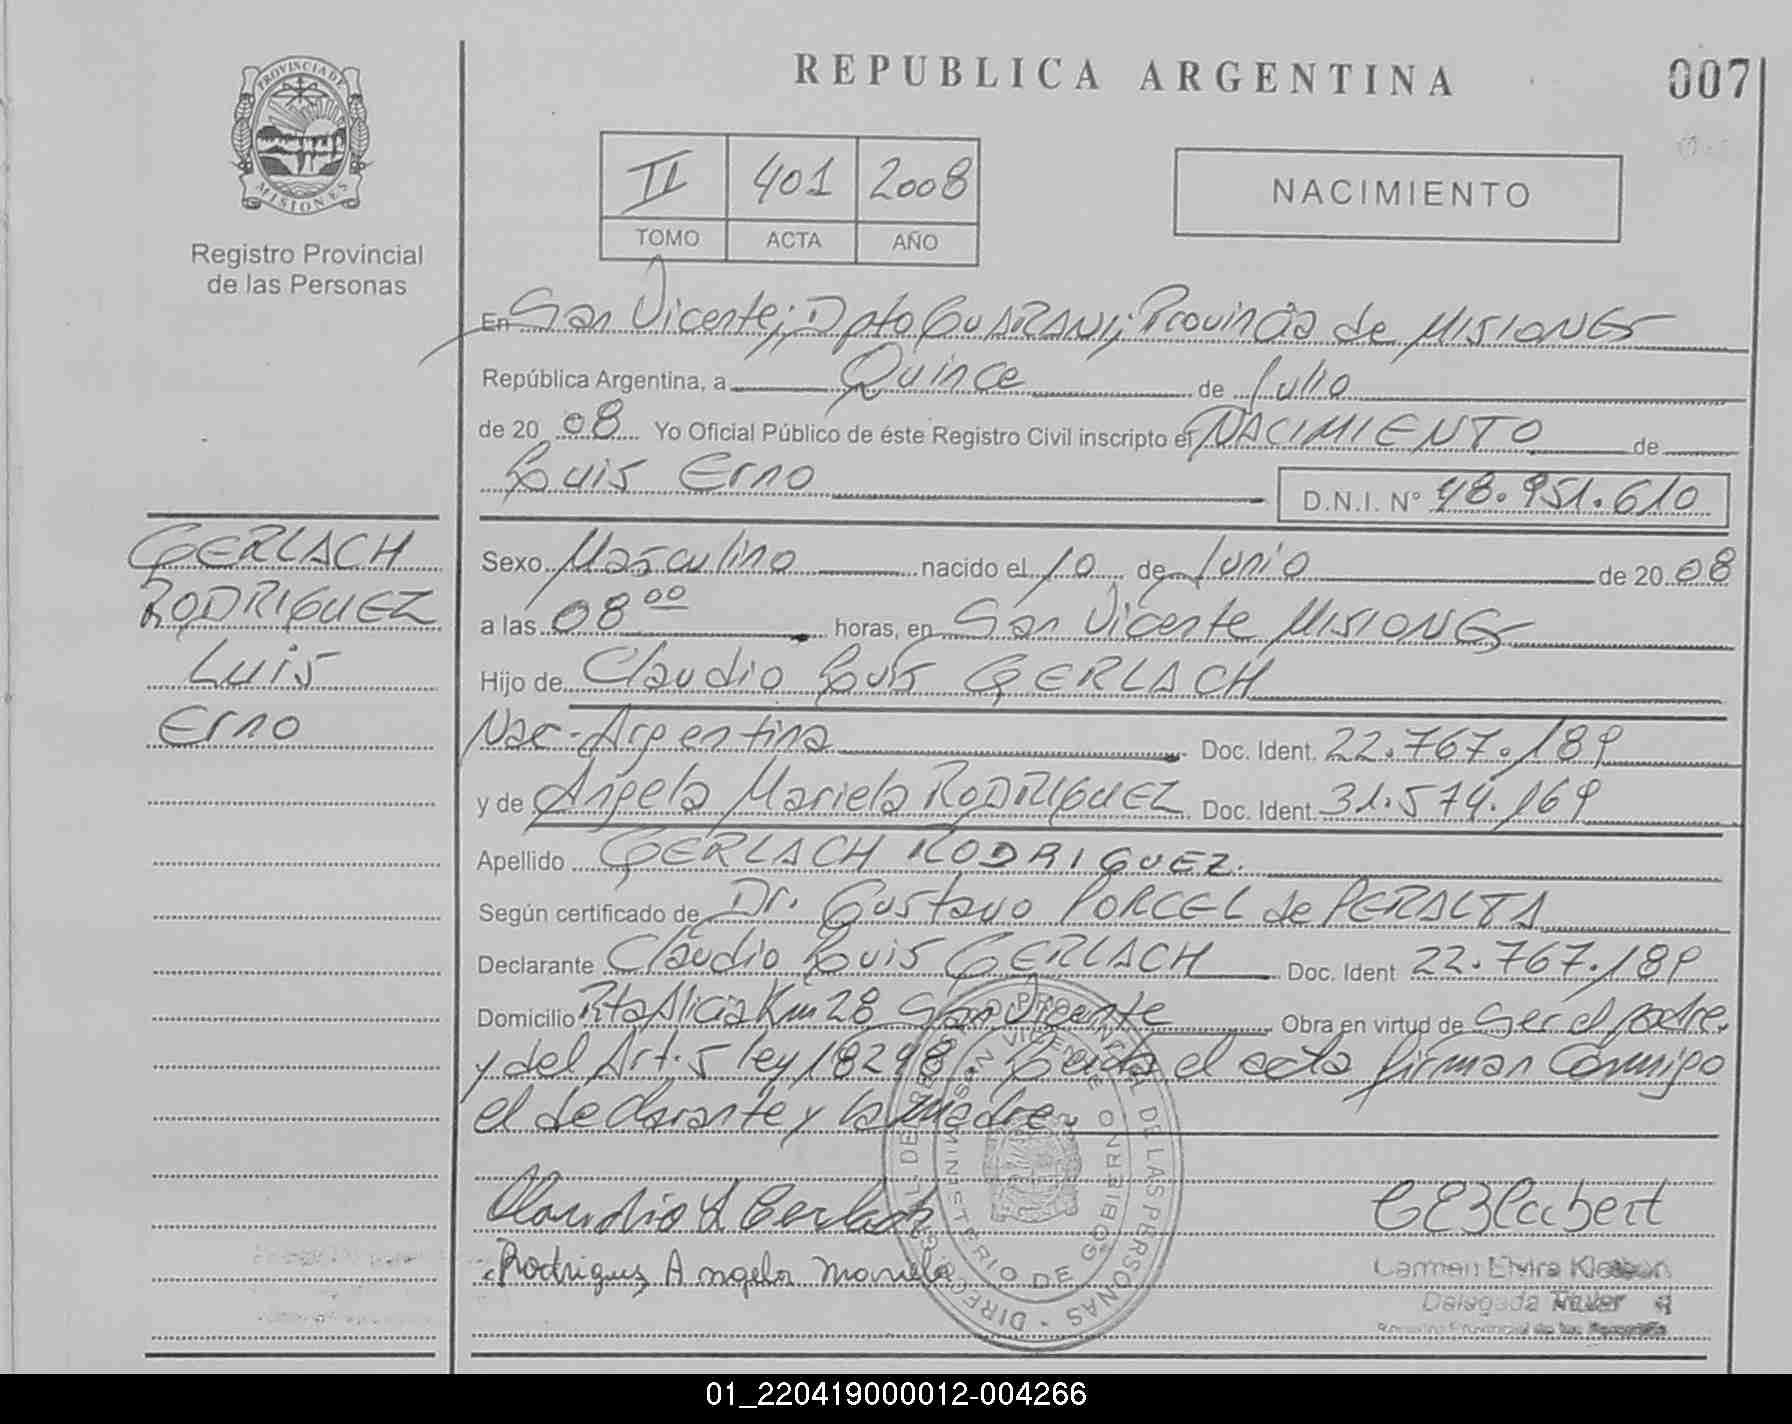 REPUBLICA ARGENTINA
007
PROVINCIA DE
MISIONES
Registro Provincial
de las Personas
II 401 2008
TOMO ACTA AÑO
NACIMIENTO
En San Vicente; Dpto GUARANI; Provincia de MISIONES
República Argentina, a Quince de Julio
de 2008 Yo Oficial Público de éste Registro Civil inscripto el NACIMIENTO de
Luis Erno
D.N.I. N° 48.951.610
GERLACH
RODRIGUEZ
Luis
Erno
Sexo Masculino nacido el 10 de Junio de 2008
a las 08 00 horas, en San Vicente MISIONES
Hijo de Claudio Luis GERLACH
Nac-Argentina Doc. Ident. 22.767.189
y de Angela Mariela RODRIGUEZ Doc. Ident. 31.574.169
Apellido GERLACH RODRIGUEZ.
Según certificado de Dr. Gustavo PORCEL de PERALTA
Declarante Claudio Luis GERLACH Doc. Ident 22.767.189
Domicilio Pta Alicia Km 28 San Vicente Obra en virtud de Ser el padre.
y del Art. 5 ley 18298. Leida el acta firman Conmigo
el declarante y la madre.
Claudio L Gerlach
Rodriguez Angela Mariela
Carmen Elvira
Delegada
Registro Provincial de las Personas
DIRECC. GRAL. DE REG. PROVINCIAL DE LAS PERSONAS
MINISTERIO DE GOBIERNO
SAN VICENTE
01_220419000012-004266